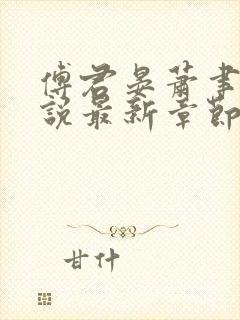 傅君晏萧聿
说最新章节
甘什